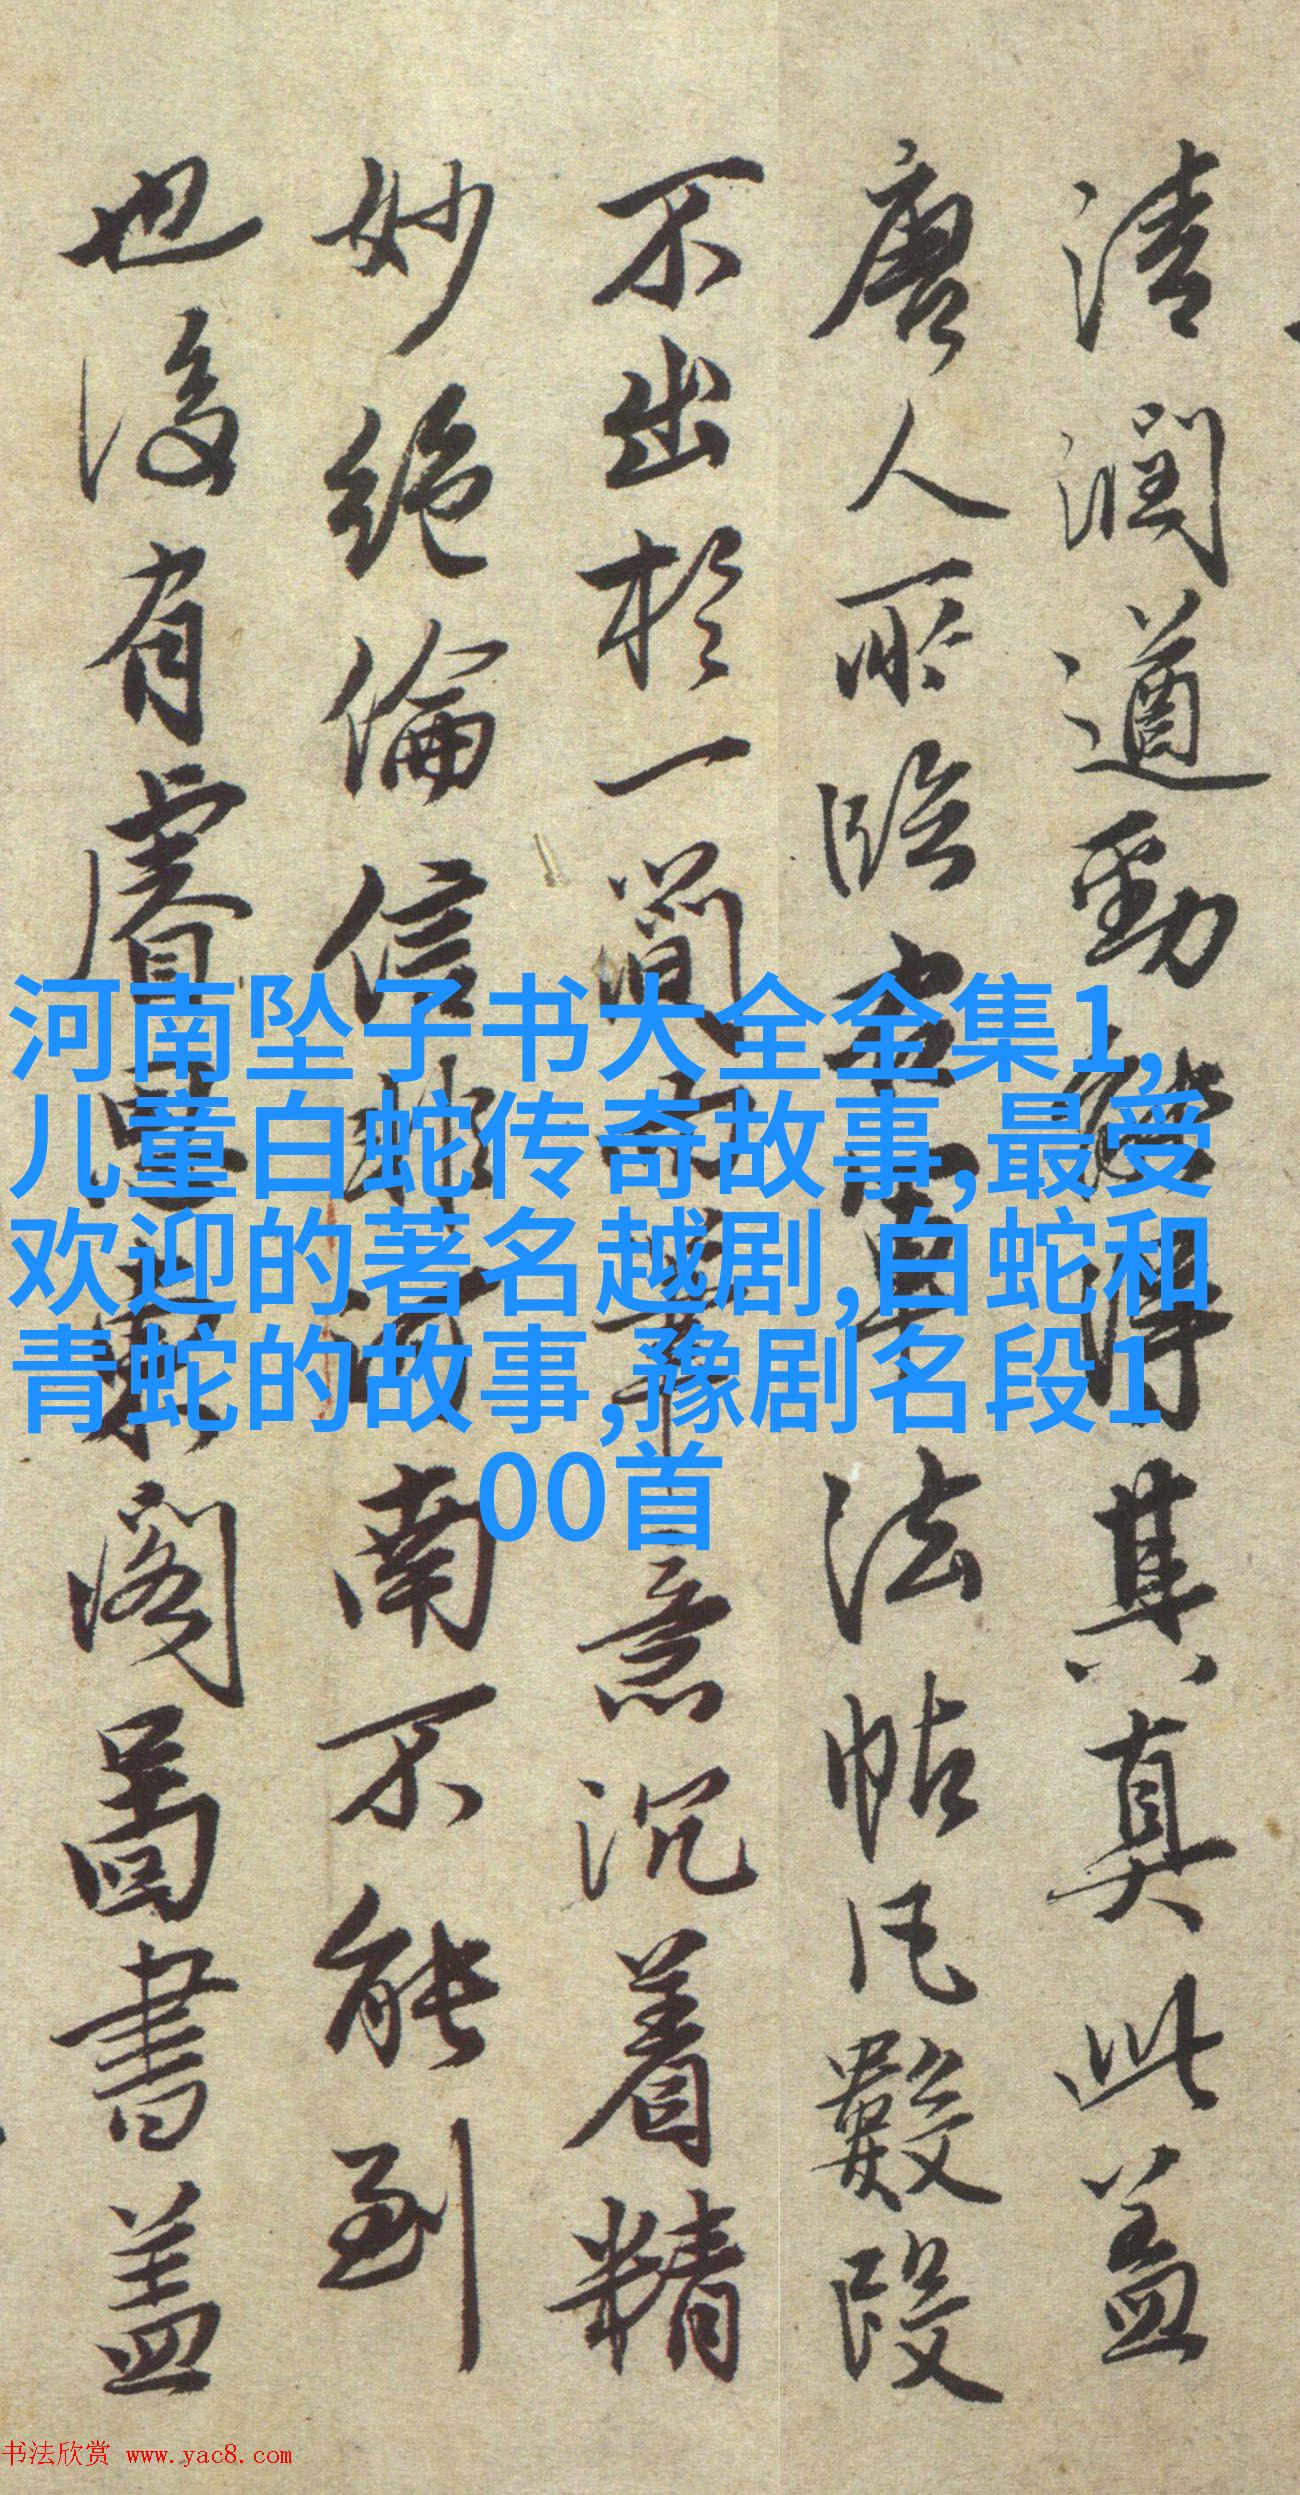 清潤遒勁得其真真此盖
唐人所臨法帖凡數段
不出於一簡而筆意沉着精
妙絶倫信河南不能到
也後有睿思東閣圖書盖
河南坠子书大全全集1,
儿童白蛇传奇故事,最受
欢迎的著名越剧,白蛇和
青蛇的故事,豫剧名段1
00首
书法欣赏 www.yac8.com